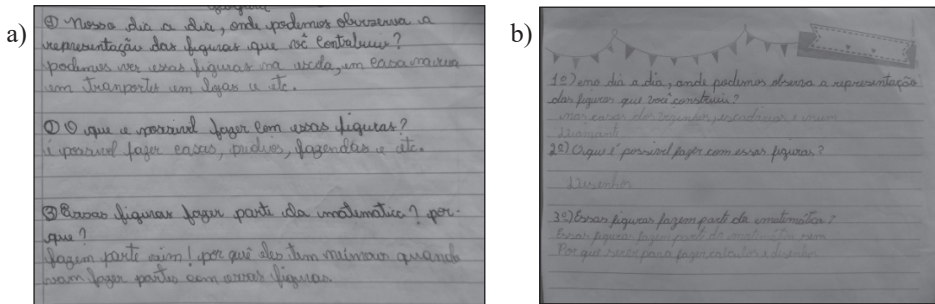 a)
① Nosso dia a dia, onde podemos observa a
representação das figuras que você
podemos ver essas figuras na escola, em casa na rua
em tranportes em lojas e etc.
① O que e possivel fazer com essas figuras?
é possivel fazer casas, predios, fazendas e etc.
③ Essas figuras fazer parte da matemática? por-
que?
fazem parte sim! por quê eles tem números quando
vam fazer partes com essas figuras
b)
1º) eno dia a dia, onde podemos observa a representação
das figuras que você construiu?
nas casas dos vizinhos, e num
Diamant
2º) O que é possivel fazer com essas figuras?
Desenhos
3º) Essas figuras fazem parte da matemática?
Essas figuras fazem parte da matemática sim
Por que serve para fazer calculos e desenhos